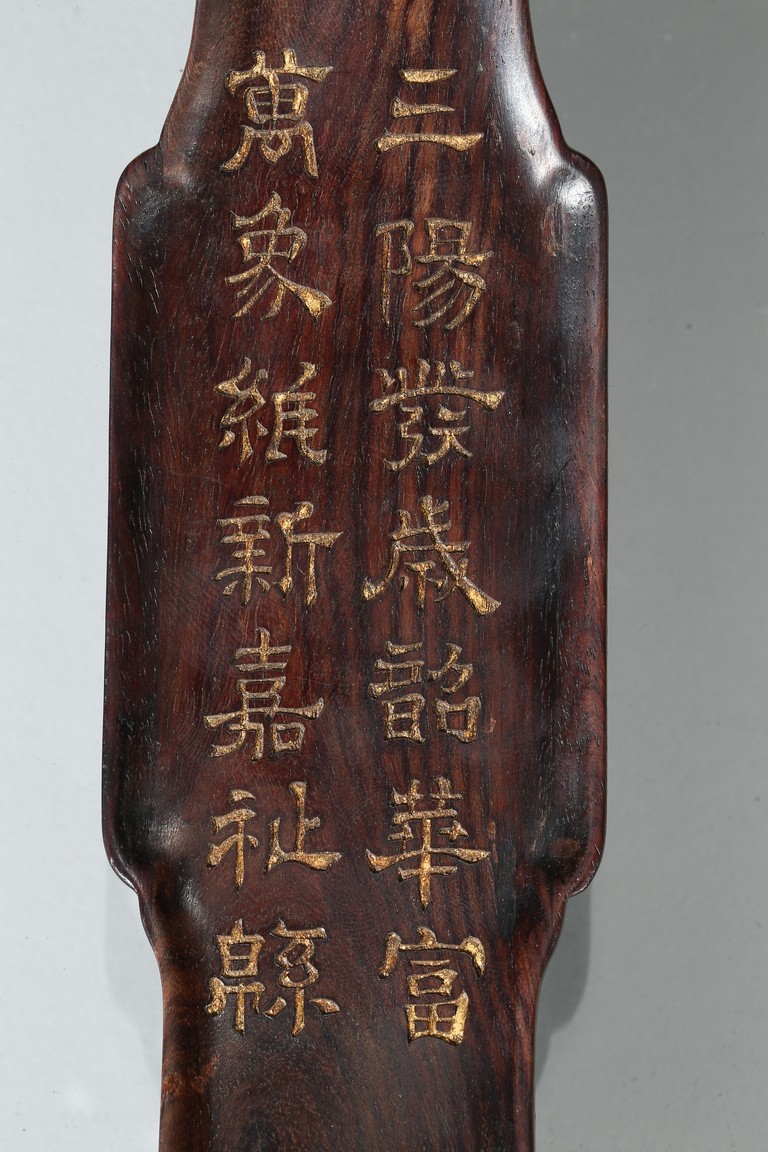 三陽發歲韶華富
萬象維新嘉祉緜